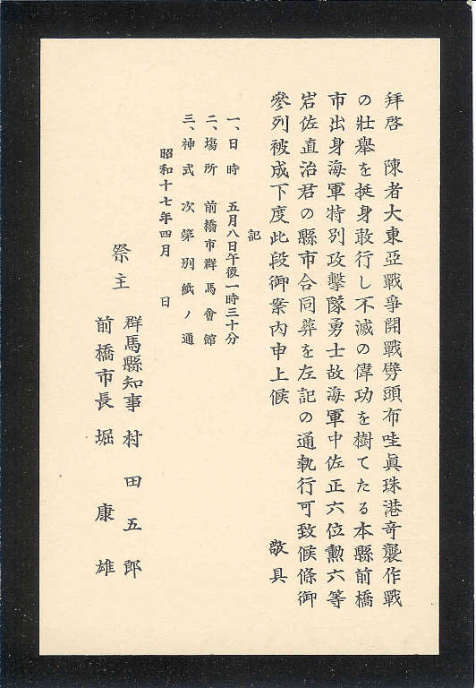 拜啓　陳者大東亞戰爭開戰劈頭布哇眞珠港奇襲作戰
の壯擧を挺身敢行し不滅の偉功を樹てたる本縣前橋
市出身海軍特別攻擊隊勇士故海軍中佐正六位勲六等
岩佐直治君の縣市合同葬を左記の通執行可致候條御
參列被成下度此段御案內申上候　敬具
記
一、日時　五月八日午後一時三十分
二、場所　前橋市群馬會館
三、神式　次第別紙ノ通
昭和十七年四月　日
祭主
群馬縣知事　村田五郎
前橋市長　堀康雄